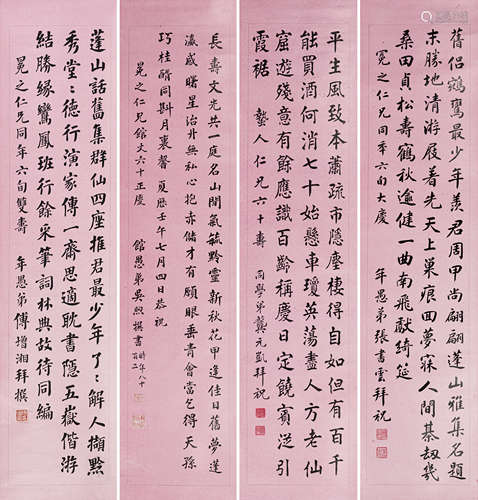 舊侶鵷鸞最少年羨君周甲尚翩翩蓬山雅集名題
末勝地清游屐著先天上巢痕回夢寐人間棊劫幾
桑田貞松壽鶴秋逾健一曲南飛獻綺筵
冕之仁兄同年六旬大慶
年愚弟張書雲拜祝
平生風致本蕭疏市隱塵棲得自如但有百千
能買酒何消七十始懸車瓊英蕩盡人方老仙
窟遊殘意有餘應識百齡稱慶日定饒賓從引
霞裾
蟄人仁兄六十壽
同學弟龔元凱拜祝
長壽文光共一庭名山閒氣毓黔靈新秋花甲逢佳日舊夢蓬
瀛感曙星治世無私心抱赤儲才有願眼垂青會當乞得天孫
巧桂醑同斟月裏馨
夏歷壬午七月四日恭祝
冕之仁兄館丈六十正慶
館愚弟吳煦撰書
時年八十
有二
蓬山話舊集群仙四座推君最少年了了解人擷黔
秀堂堂德行演家傳一齋思適耽書隱五嶽偕游
結勝緣鸞鳳班行餘采筆詞林典故待同編
冕之仁兄同年六旬雙壽
年愚弟傅增湘拜撰